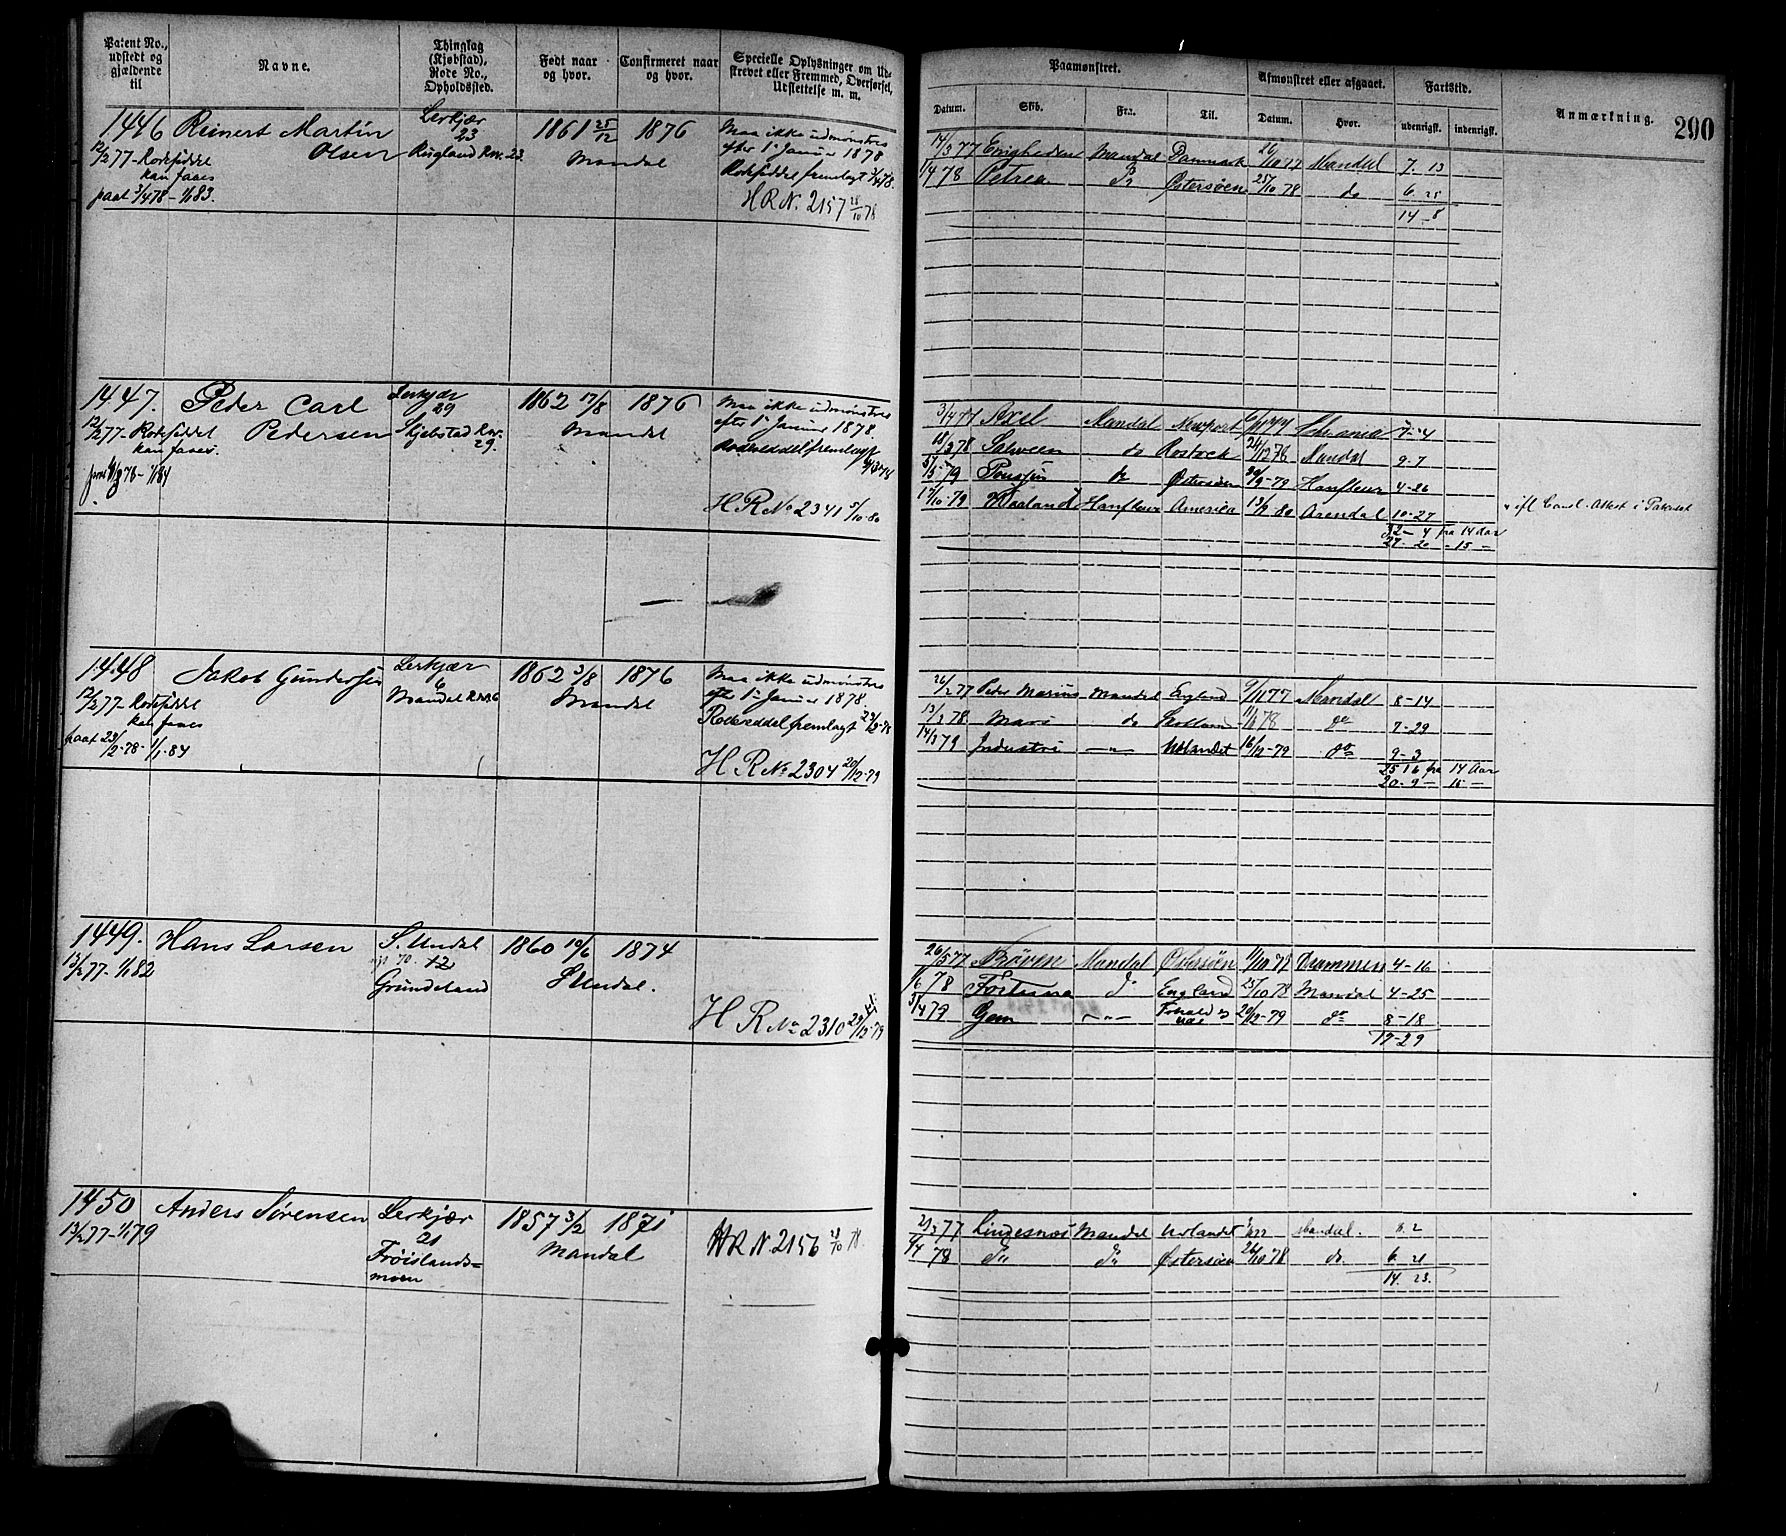 Patent No., udstedt og gjældende til
Navne.
Thinglag (Kjøbstad), Rode No., Opholdssted.
Født naar og hvor.
Confirmeret naar og hvor.
Specielle Oplysninger om Udskrevet eller Fremmed, Overførsel, Udslettelse m. m.
Paamønstret.
Datum.
Skib.
Fra.
Til.
Afmønstret eller afgaaet.
Datum.
Hvor.
Fartstid.
udenrigsk.
indenrigsk.
Anmærkning.
290
1446 Reinert Martin Lerkjær 1861 25/12 1876 Maa ikke udmønstres
Olsen 23 efter 1ste Januar 1878
12/2 77 - Rodesiddel Risgland R.Nr. 23 Mandal
kan faaes Rodesiddel fremlagt 3/4 78.
paat 3/4 78 - 1/1 83. H R N. 2157 28/10 78
14/3 77 Enigheden Mandal Danmark 26/10 77 Mandal 7. 13
1/4 78 Petrea Do Østersøen 25/10 78 do 6. 25
14 - 8
1447. Peder Carl Lerkjær 1862 17/8 1876 Maa ikke udmønstres
12/2 77 - Rodesiddel Pedersen 29 Mandal efter 1ste Januar 1878.
kan faaes. Skjebstad R.Nr. 29.
H R No 2341 5/10 - 80
3/4 77 Axel Mandal Newport 7 - 4
18/3 78 do Rostock 24/12 78 Mandal 9 - 7
5/5 - 79 do Østersøen 30/9 - 79 Honfleur 4 - 26
17/10 - 79 Honfleur America 13/9 - 80 Arendal 10 - 27
32 - 4 fra 14 Aar
27 - 20 - 15 -
1448 Jakob Gundersen Lerkjær 1862 3/8 1876 Maa ikke udmønstres
12/2 77 - Rodesiddel 6 efter 1ste Januar 1878.
kan faaes Mandal R.Nr. 6 Mandal Rodesiddel fremlagt 23/2 - 78
paat 23/2 - 78 - 1/1 - 84
H R No 2304 20/12 - 79
26/2 77 Peder Marius Mandal England 9/11 77 Mandal 8 - 14
13/3 78 Mars do Skotland 11/11 78 do 7 - 29
14/3 79 Industri - " - Udlandet 16/12 - 79 do 9 - 3
25 16 fra 14 Aar
20 - 9 - 15 -
1449. Hans Larsen S. Undal 1860 19/6 1874
13/2 77 - 1/1 82 70. 12
Grundeland S Undal.
H R No 2310 29/12 - 79
26/5 77 Prøven Mandal Østersøen 1/10 77 Drammen 4 - 16
1/6 78 Fortuna Do England 25/10 78 Mandal 4 - 25
5/4 79 Gem - " - 20/12 - 79 do 8 - 18
17 - 29
1450 Anders Sørensen Lerkjær 1857 3/2 1871
13/2 77 - 1/1 79 21 Mandal H R N. 2156 28/10 78.
Frøislandsmoen
77 Lindesnæs Mandal Udlandet Mandal. 8. 2
4/4 78 Do Do Østersøen 26/10 78 do. 6. 21
14. 23.